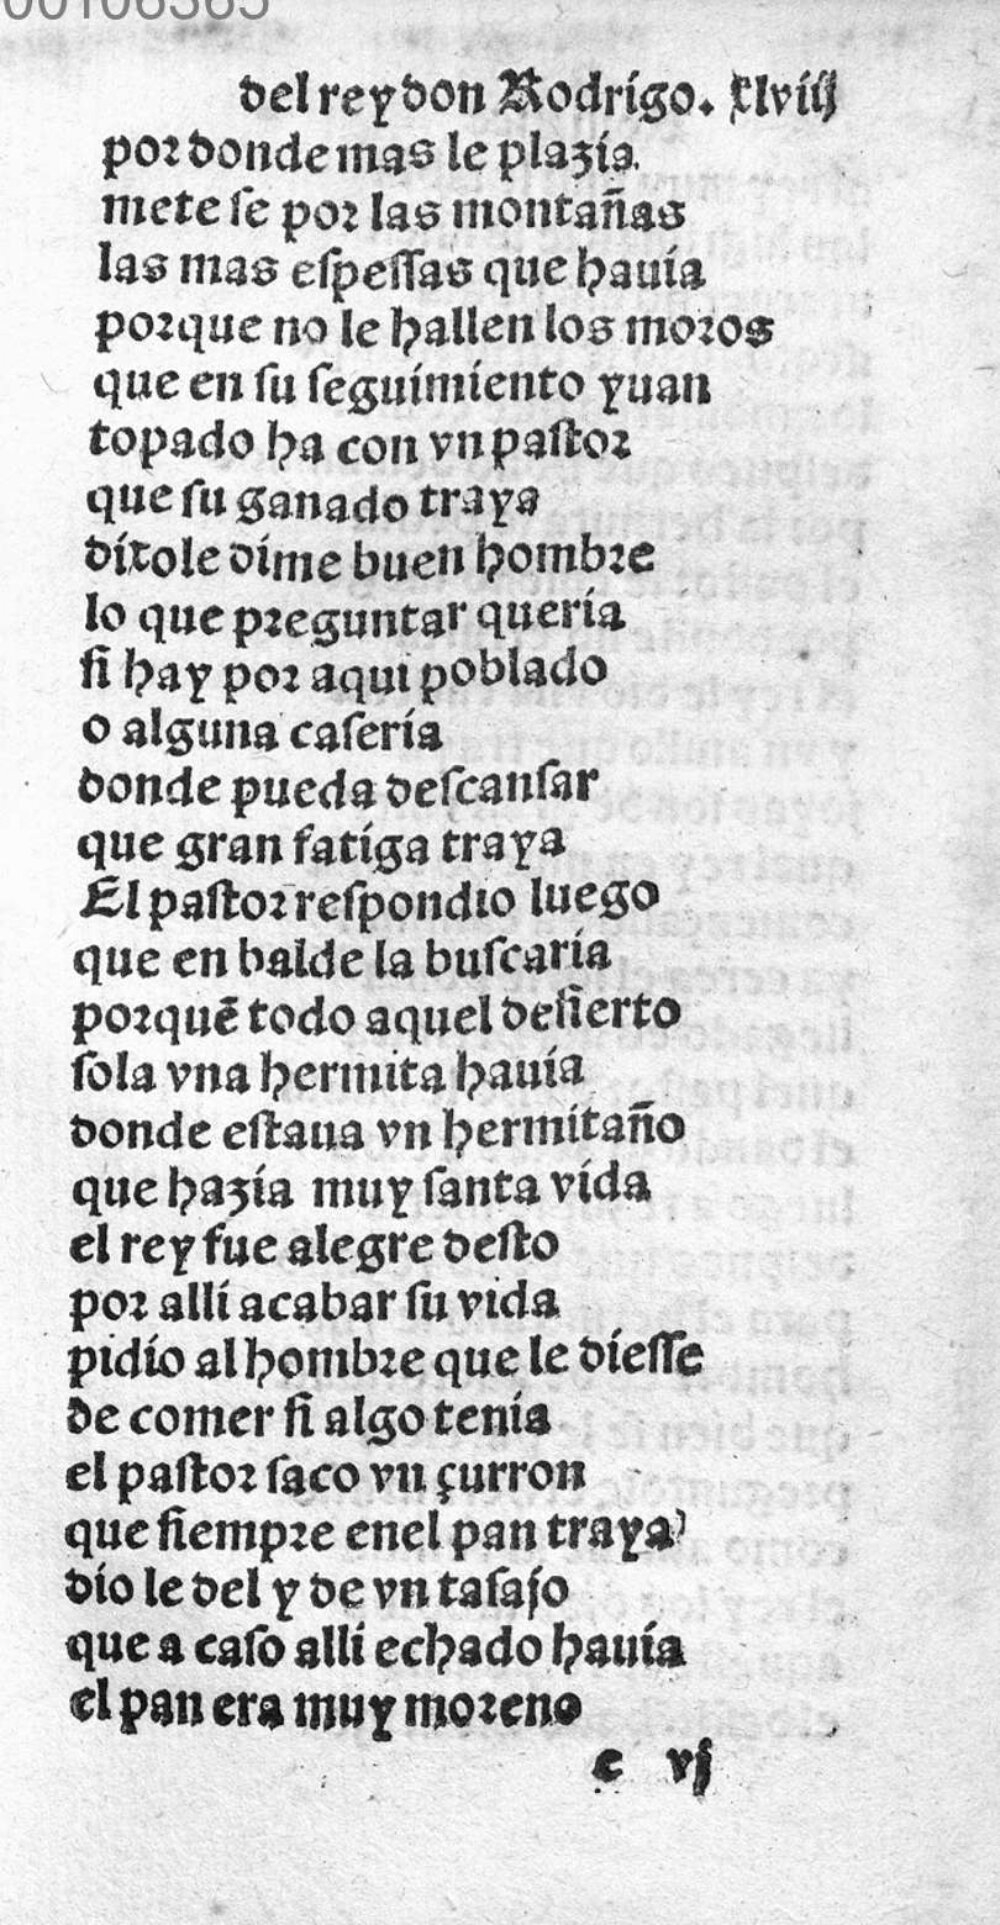 00106365
del rey don Rodrigo. xlviij
por donde mas le plazia.
mete se por las montañas
las mas espessas que hauia
porque no le hallen los moros
que en su seguimiento yuan
topado ha con vn pastor
que su ganado traya
dixole dime buen hombre
lo que preguntar queria
si hay por aqui poblado
o alguna caseria
donde pueda descansar
que gran fatiga traya
El pastor respondio luego
que en balde la buscaria
porquē todo aquel desierto
sola vna hermita hauia
donde estaua vn hermitaño
que hazia muy santa vida
el rey fue alegre desto
por alli acabar su vida
pidio al hombre que le diesse
de comer si algo tenia
el pastor saco vn çurron
que siempre enel pan traya
dio le del y de vn tasajo
que a caso alli echado hauia
el pan era muy moreno
c vj